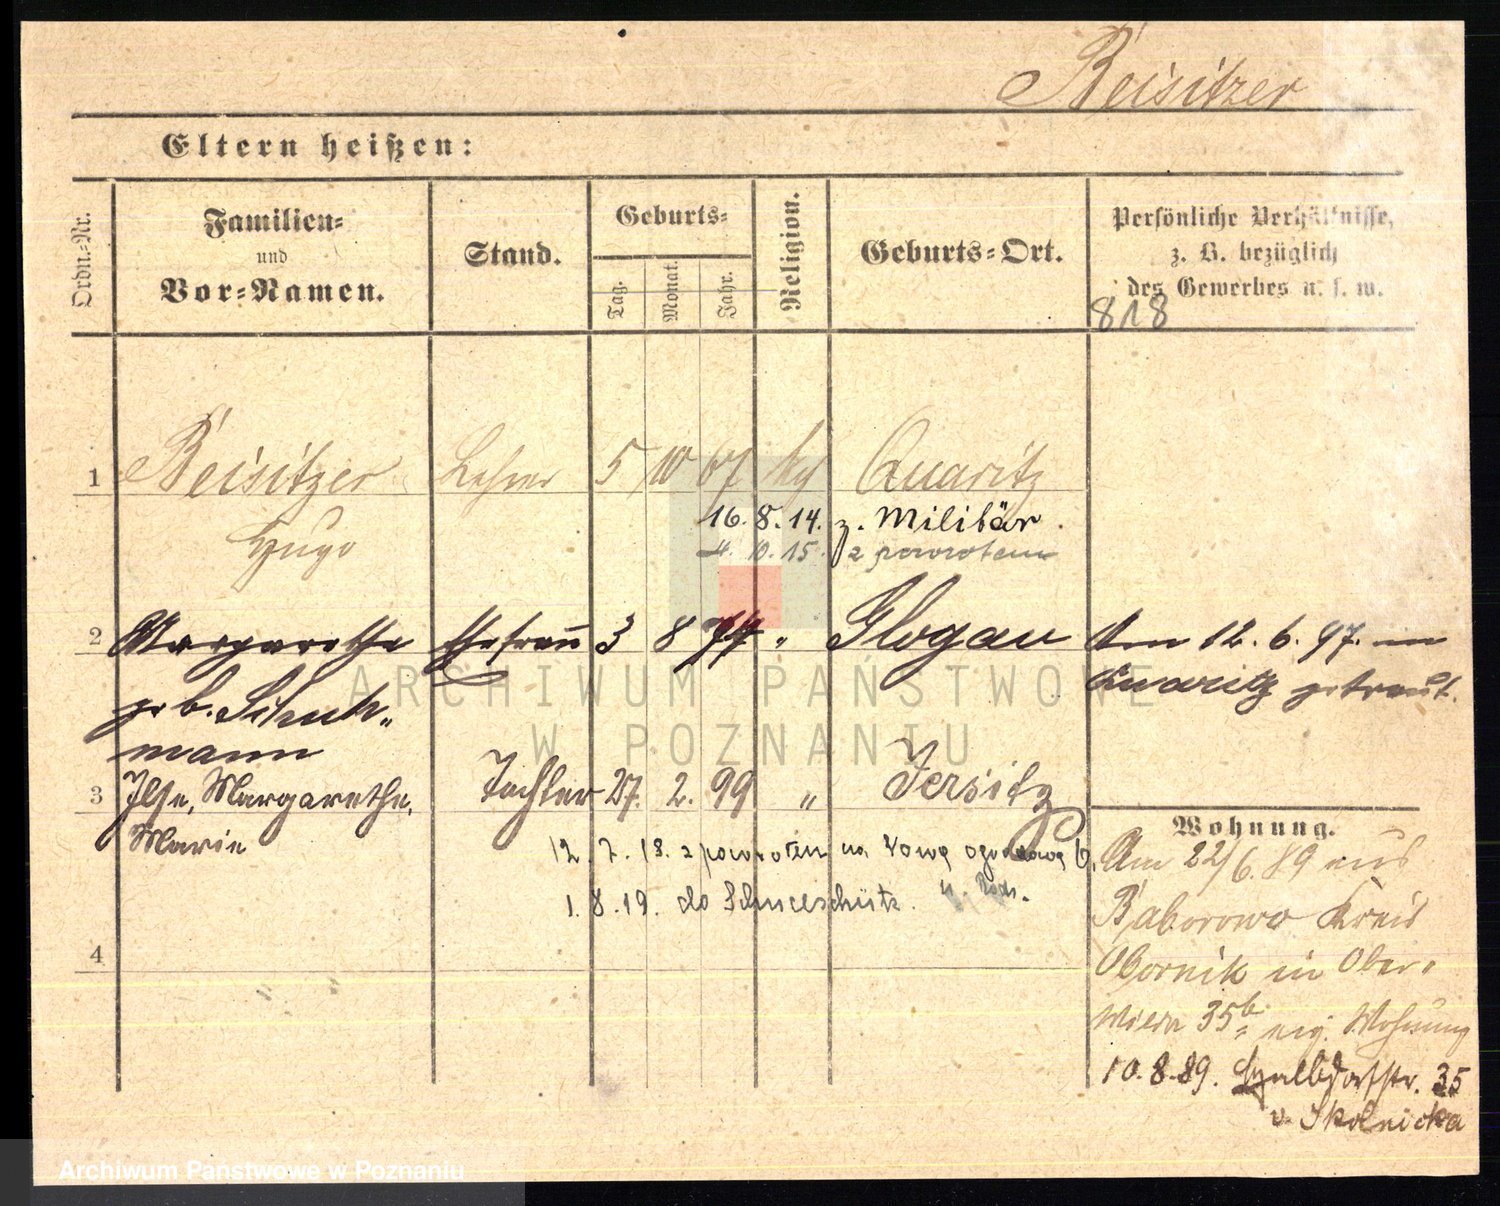 Beisitzer
Eltern heißen:
Ordn.-Nr.
Familien-
und
Vor-Namen.
Stand.
Geburts-
Tag.
Monat.
Jahr.
Religion.
Geburts-Ort.
Persönliche Verhältnisse,
z. B. bezüglich
des Gewerbes u. s. w.
818
1 Beisitzer Lehrer 5 10 67 kg Quaritz
Hugo
16. 8. 14. z. Militär.
4. 10. 15. z powrotem
2 Margarethe Ehefrau 3 8 77 " Glogau Am 12. 6. 97. in
geb. Schuh-
mann
Quaritz getraut.
3 Ilse, Margarethe, Tochter 27. 2. 99 " Jersitz
Marie
12. 7. 18. z powrotem na Nową ogrodową 6.
1. 8. 19. do
4
Wohnung.
Am 22/6. 89 aus
Baborowo Kreis
Obornik in Ober-
Wilda 35b
Wohnung
10. 8. 89. Halbdorfstr. 35
v. Skolnicka
ARCHIWUM PAŃSTWOWE
W POZNANIU
Archiwum Państwowe w Poznaniu